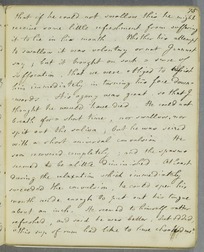 that if he could not swallow this he might
receive some little refreshment from suffering
it to lie in his mouth. Whether his attempt
to swallow it was voluntary or not I cannot
say, but it brought on such a sense of
suffocation, that we were obliged to
him immediately, in turning his face down
wards. His agony was great, so that I
thought he would have died. He could not
breath for a short time, nor swallow, nor
spit out the saliva, but he was seized
with a short universal convulsion. He
soon recovered completely, and the spasms
seemed to be a little diminished. At least
during the relaxation which immediately
succeeded the convulsion, he could open his
mouth wide enough to put out his tongue
about an inch. He seemed to himself rather
refreshed, and said he was better, but added
this cup of man had like to have